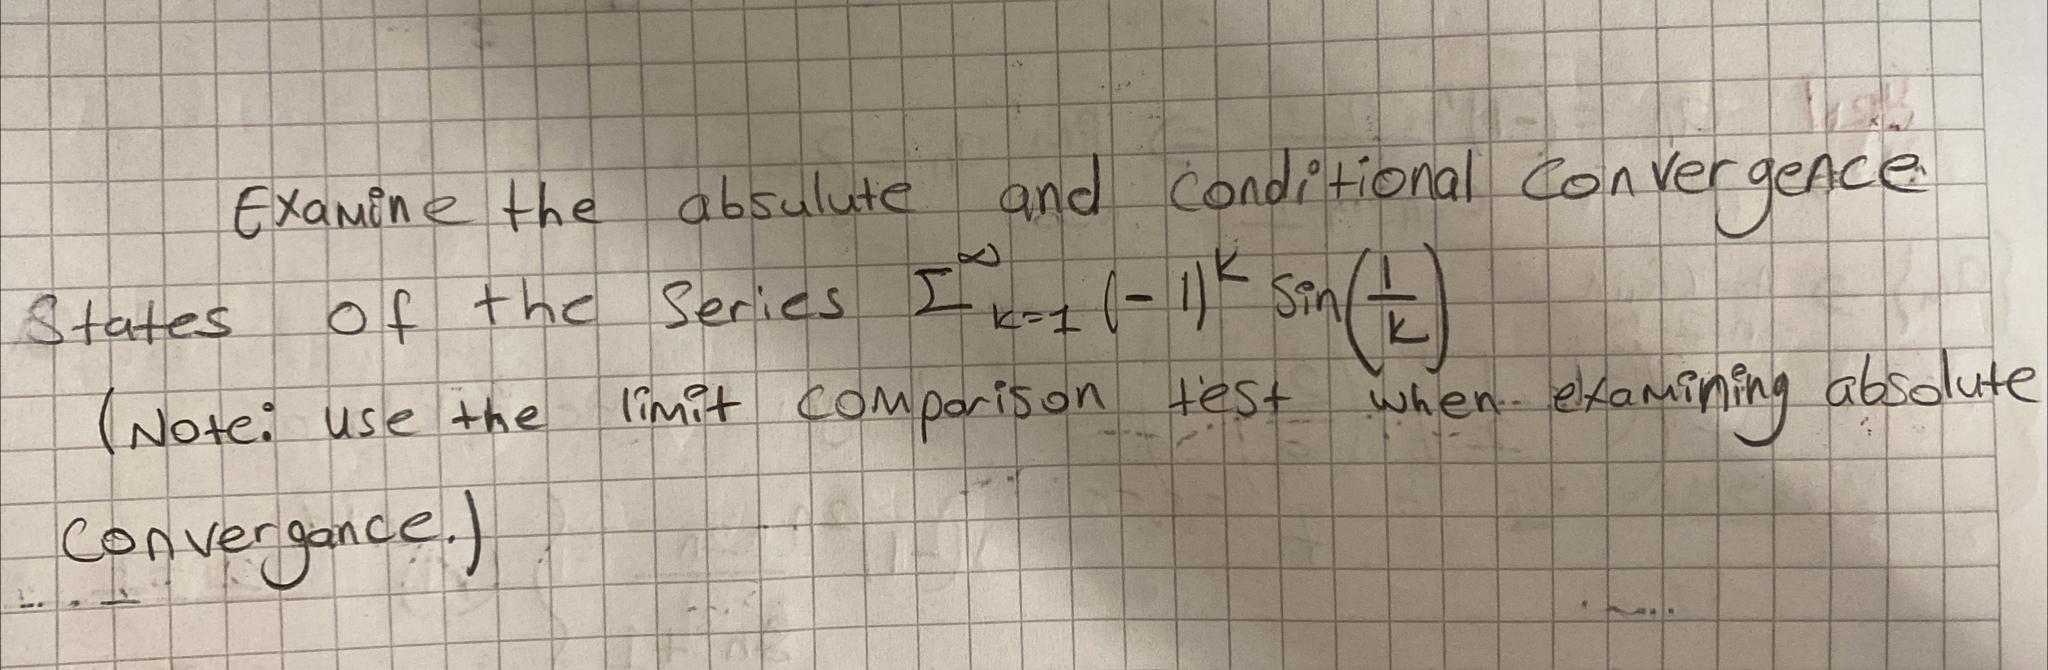 Examine the absulute and conditional convergence
States of the Series Σ^∞_{k=1} (-1)^k Sin(1/k)
(Note: use the limit comparison test when examining absolute
convergance.)